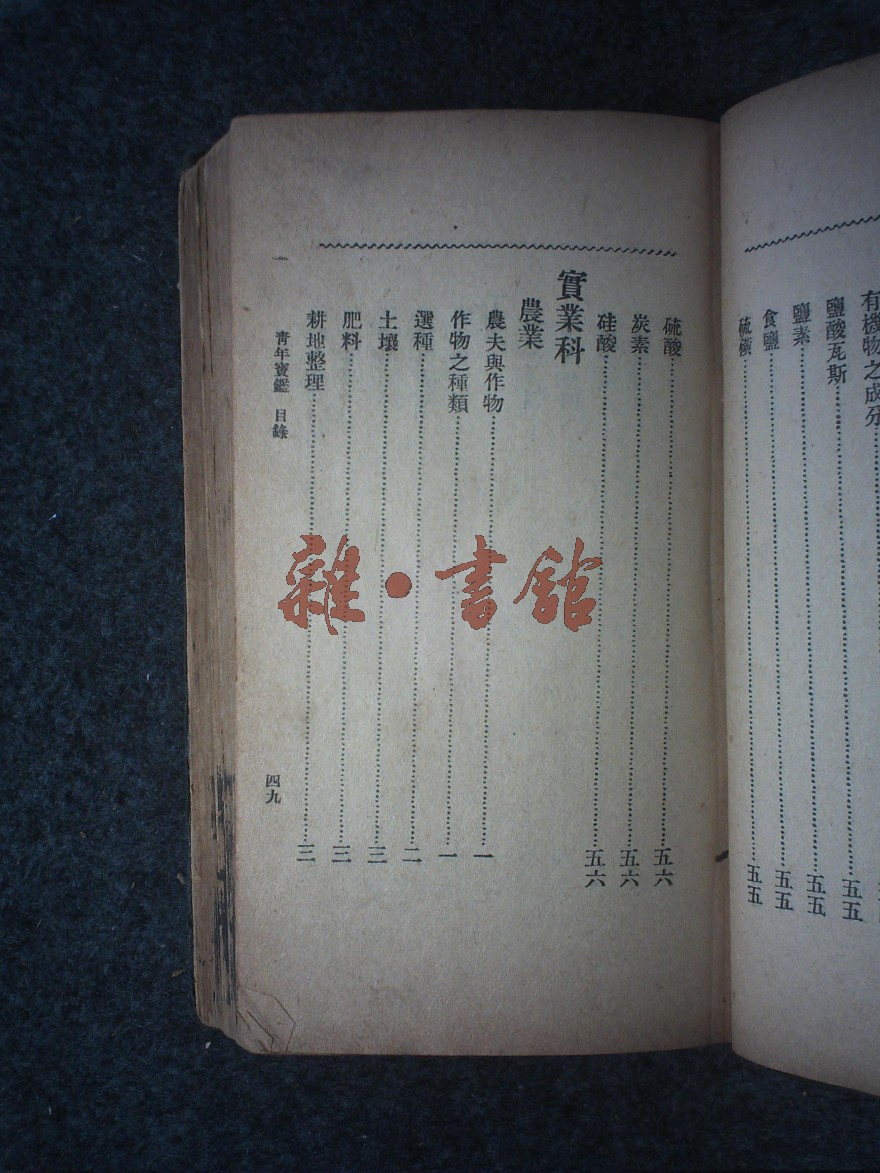 有機物之成分
鹽酸瓦斯……五五
鹽素……五五
食鹽……五五
硫磺……五五
硫酸……五六
炭素……五六
硅酸……五六
實業科
農業
農夫與作物……一
作物之種類……一
選種……二
土壤……三
肥料……三
耕地整理……三
青年寶鑑 目錄
四九
雜·書館